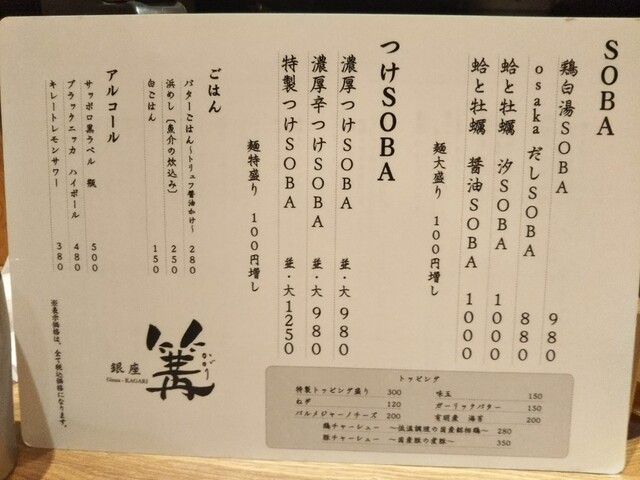 SOBA
鶏白湯SOBA 980
osaka だしSOBA 880
蛤と牡蠣 汐SOBA 1000
蛤と牡蠣 醤油SOBA 1000
麺大盛り 100円増し
つけSOBA
濃厚つけSOBA 並・大 980
濃厚辛つけSOBA 並・大 980
特製つけSOBA 並・大 1250
麺特盛り 100円増し
ごはん
バターごはん〜トリュフ醤油かけ〜 280
浜めし〔魚介の炊込み〕 250
白ごはん 150
アルコール
サッポロ黒ラベル 瓶 500
ブラックニッカ ハイボール 480
キレートレモンサワー 380
※表示価格は、全て税込価格になります。
銀座
Ginza - KAGARI
篝
かがり
トッピング
特製トッピング盛り 300
ねぎ 120
パルメジャーノチーズ 200
味玉 150
ガーリックバター 150
有明産 海苔 200
鶏チャーシュー 〜低温調理の国産銘柄鶏〜 280
豚チャーシュー 〜国産豚の煮豚〜 350